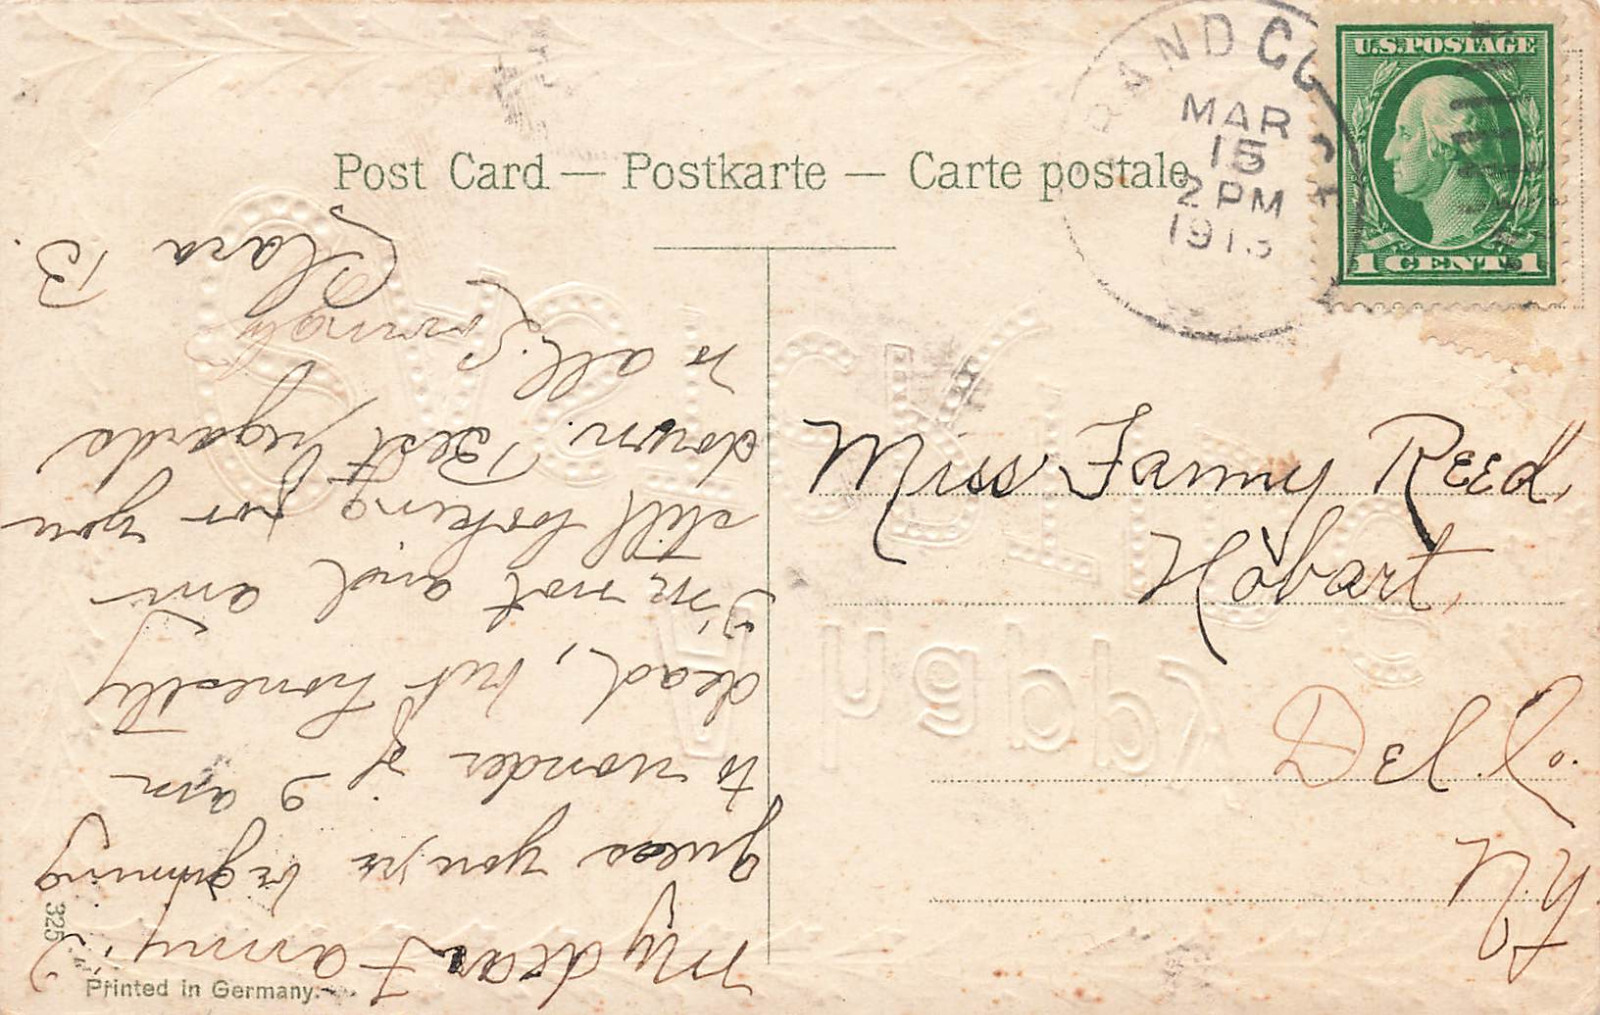 Post Card — Postkarte — Carte postale
RAND
MAR
15
2 PM
1913
U.S. POSTAGE
1 CENT 1
Miss Fanny Reed,
Hobart,
Del. Co.
N.Y.
My dear Fanny: I
guess you're beginning
to wonder if I am
dead, but honestly
I'm not and am
still looking for you
down. Best regards
to all. Lovingly
Clara B.
325
Printed in Germany.